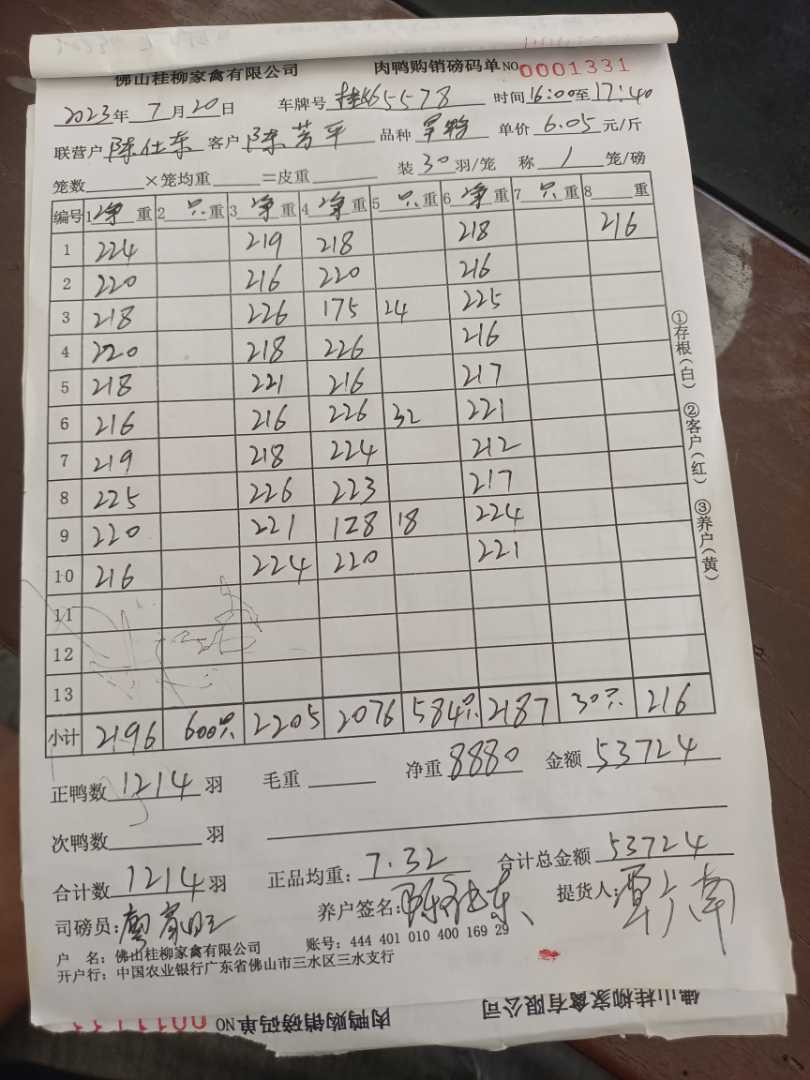 佛山桂柳家禽有限公司 肉鸭购销磅码单 NO 0001331
2023年 7 月 20 日 车牌号 桂K65578 时间 16:00至 17:40
联营户 陈仕东 客户 陈芳平 品种 单价 6.05 元/斤
笼数 ×笼均重 =皮重 装 30 羽/笼 称 1 笼/磅
编号 1 净 重 2 只 重 3 净 重 4 净 重 5 只 重 6 净 重 7 只 重 8 重
1 224 219 218 218 216
2 220 216 220 216
3 218 226 175 24 225
4 220 218 226 216
5 218 221 216 217
6 216 216 226 32 221
7 219 218 224 212
8 225 226 223 217
9 220 221 128 18 224
10 216 224 220 221
11
12
13
小计 2196 600只 2205 2076 584只 2187 30只 216
①存根(白) ②客户(红) ③养户(黄)
正鸭数 1214 羽 毛重 净重 8880 金额 53724
次鸭数 羽
合计数 1214 羽 正品均重: 7.32 合计总金额 53724
司磅员: 养户签名: 提货人:
户 名: 佛山桂柳家禽有限公司 账号: 444 401 010 400 169 29
开户行: 中国农业银行广东省佛山市三水区三水支行
佛山桂柳家禽有限公司 肉鸭购销磅码单 NO